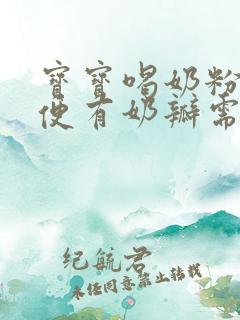 宝宝喝奶粉
便有奶瓣需
纪航君
未经同意禁止转载